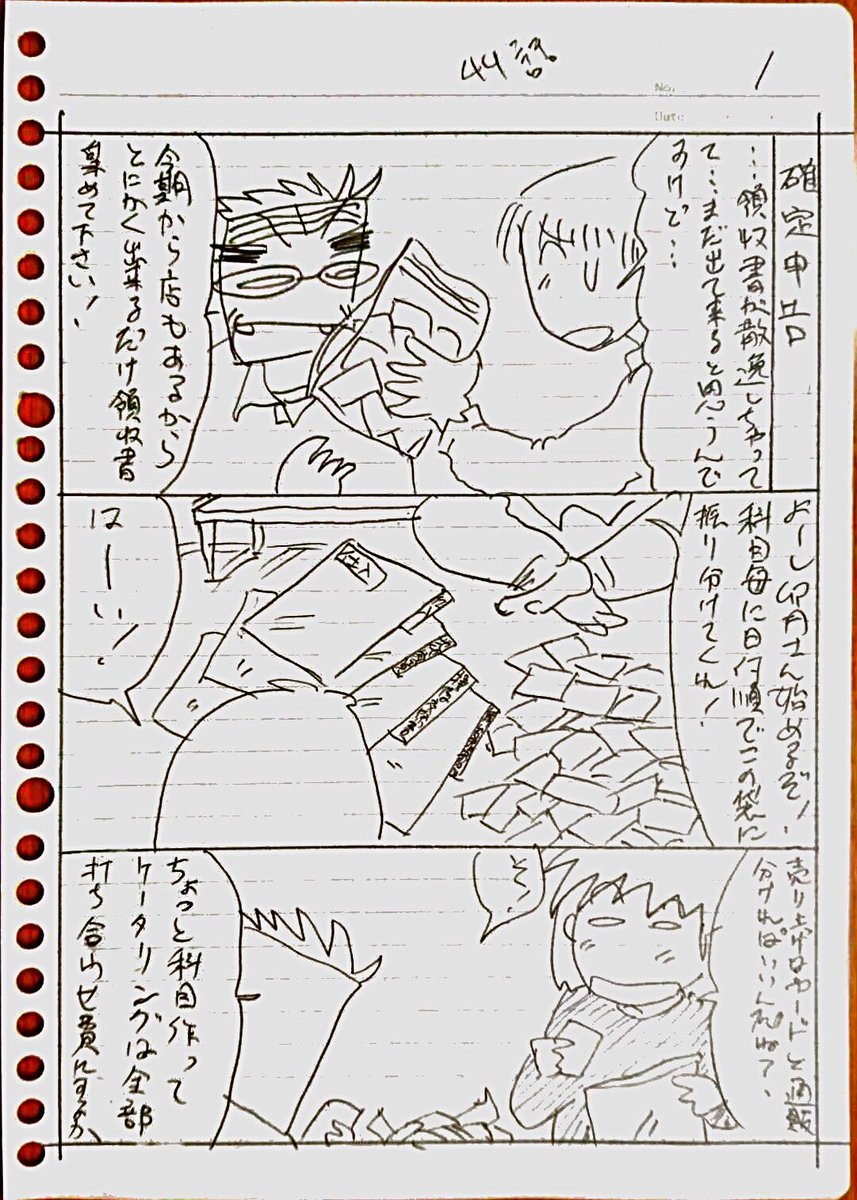 44話
No.
1
Date
確定申告
…領収書が散逸しちゃって
て…まだ出て来ると思うんで
すけど…
今期から店もあるから
とにかく出来るだけ領収書
集めて下さい！
よーし卯月さん始めるぞ！
科目毎に日付順でこの袋に
振り分けてくれ！
はーい！
売り上げはカードと通販
分ければいいんだねて、
そ！
ちょっと科目作って
ケータリングは全部
打ち合わせ費にするか